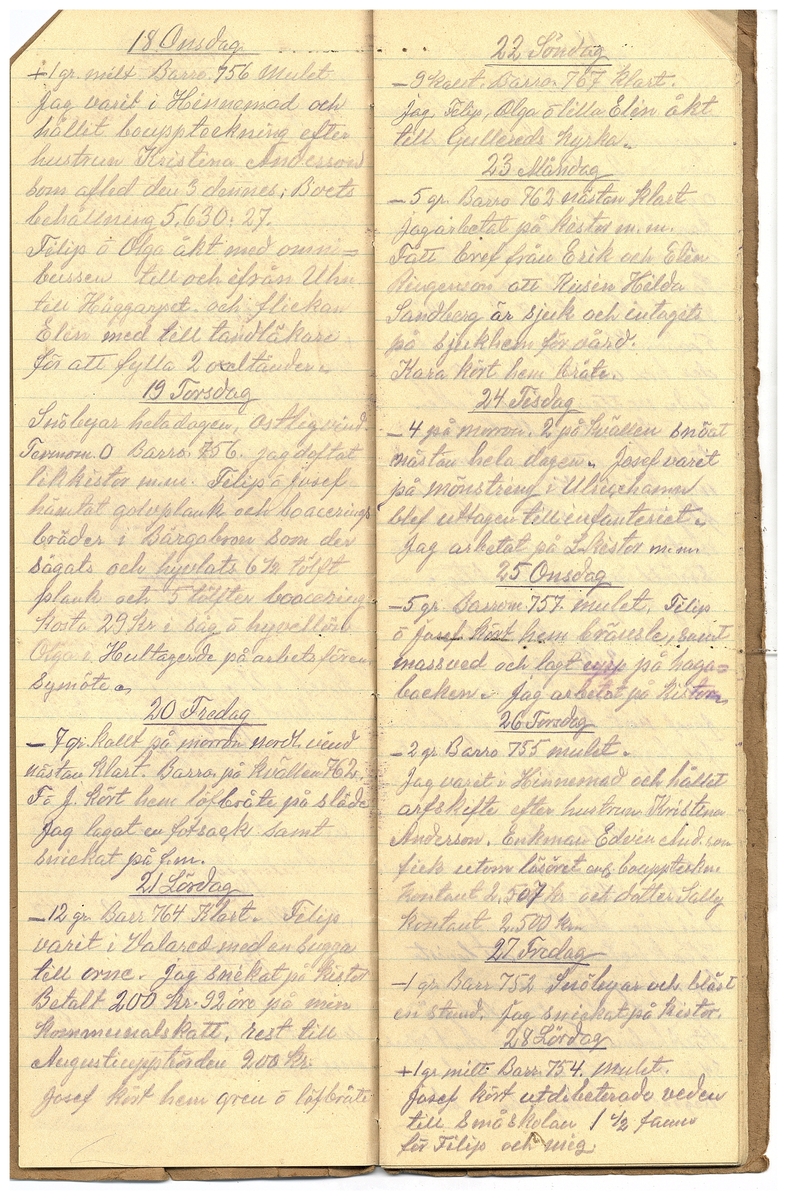 18 Onsdag
+1 gr. milt Barro. 756 Mulet
Jag varit i Hinnemad och
hållit bouppteckning efter
hustrun Kristina Anderson
som afled den 3 dennes, Boets
behållning 5,630: 27.
Filip o Olga åkt med omni=
bussen till och ifrån Uhn
till Häggarpet och flickan
Elin med till tandläkare
för att fylla 2 oxeltänder.
19 Torsdag
Snöbyar hela dagen, Ostlig vind.
Termom. 0 Barro. 756. jag doftat
likkistor m.m. Filip o Josef
hämtat golvplank och boacerings
bräder i Bärgabron som der
sågats och hyvlats 6 1/2 tolft
plank och 5 tolfter boacering
kosta 29 kr i såg o hyvellön
Olga i Hultagerde på arbetsfören
symöte.
20 Fredag
- 7 gr. kallt på morron nordl. vind
nästan klart. Barro. på kvällen 762.
F o J. kört hem löfbråte på släde
Jag lagat en forsack samt
snickat på f.m.
21 Lördag
-12 gr. Barr 764 Klart. Filip
varit i Valared med en sugga
till orne. Jag snickat på kistor
Betalt 200 kr. 92 öre på min
kommunalskatt, rest till
Augustiuppbörden 200 kr.
Josef kört hem gren o löfbråte
22 Söndag
- 9 kallt. Barro. 767 klart.
Jag, Filip, Olga o lilla Elin åkt
till Gullereds kyrka.
23 Måndag
- 5 gr. Barro 762 nästan klart
jag arbetat på kistor m.m.
Fått bref från Erik och Elin
att Kusin Hilda
Sandberg är sjuk och intagits
på sjukhem för vård.
Kara kört hem bråte.
24 Tisdag
- 4 på morron. 2 på kvällen snöat
nästan hela dagen. Josef varit
på mönstring i Ulricehamn
blef uttagen till infanteriet.
Jag arbetat på L. kistor m.m.
25 Onsdag
-5 gr. Barrom 757. mulet. Filip
o Josef kört hem bränsle, samt
massved och lagt upp på haga=
backen. Jag arbetat på kistorn
26 Torsdag
-2 gr Barro 755 mulet.
Jag varit i Hinnemad och hållet
arfskifte efter hustrun Kristina
Anderson. Enkman Edvin And. som
fick utom lösöret enl. bouppteckn.
kontant 2,507 kr och dotter Sally
kontant 2,500 kr.
27 Fredag
-1 gr. Barr 752 Snöbyar och blåst
en stund. Jag snickat på kistor.
28 Lördag
+1 gr milt Barr. 754. mulet.
Josef kört utdebeterade veden
till Småskolan 1 1/2 famn
för Filip och mig.